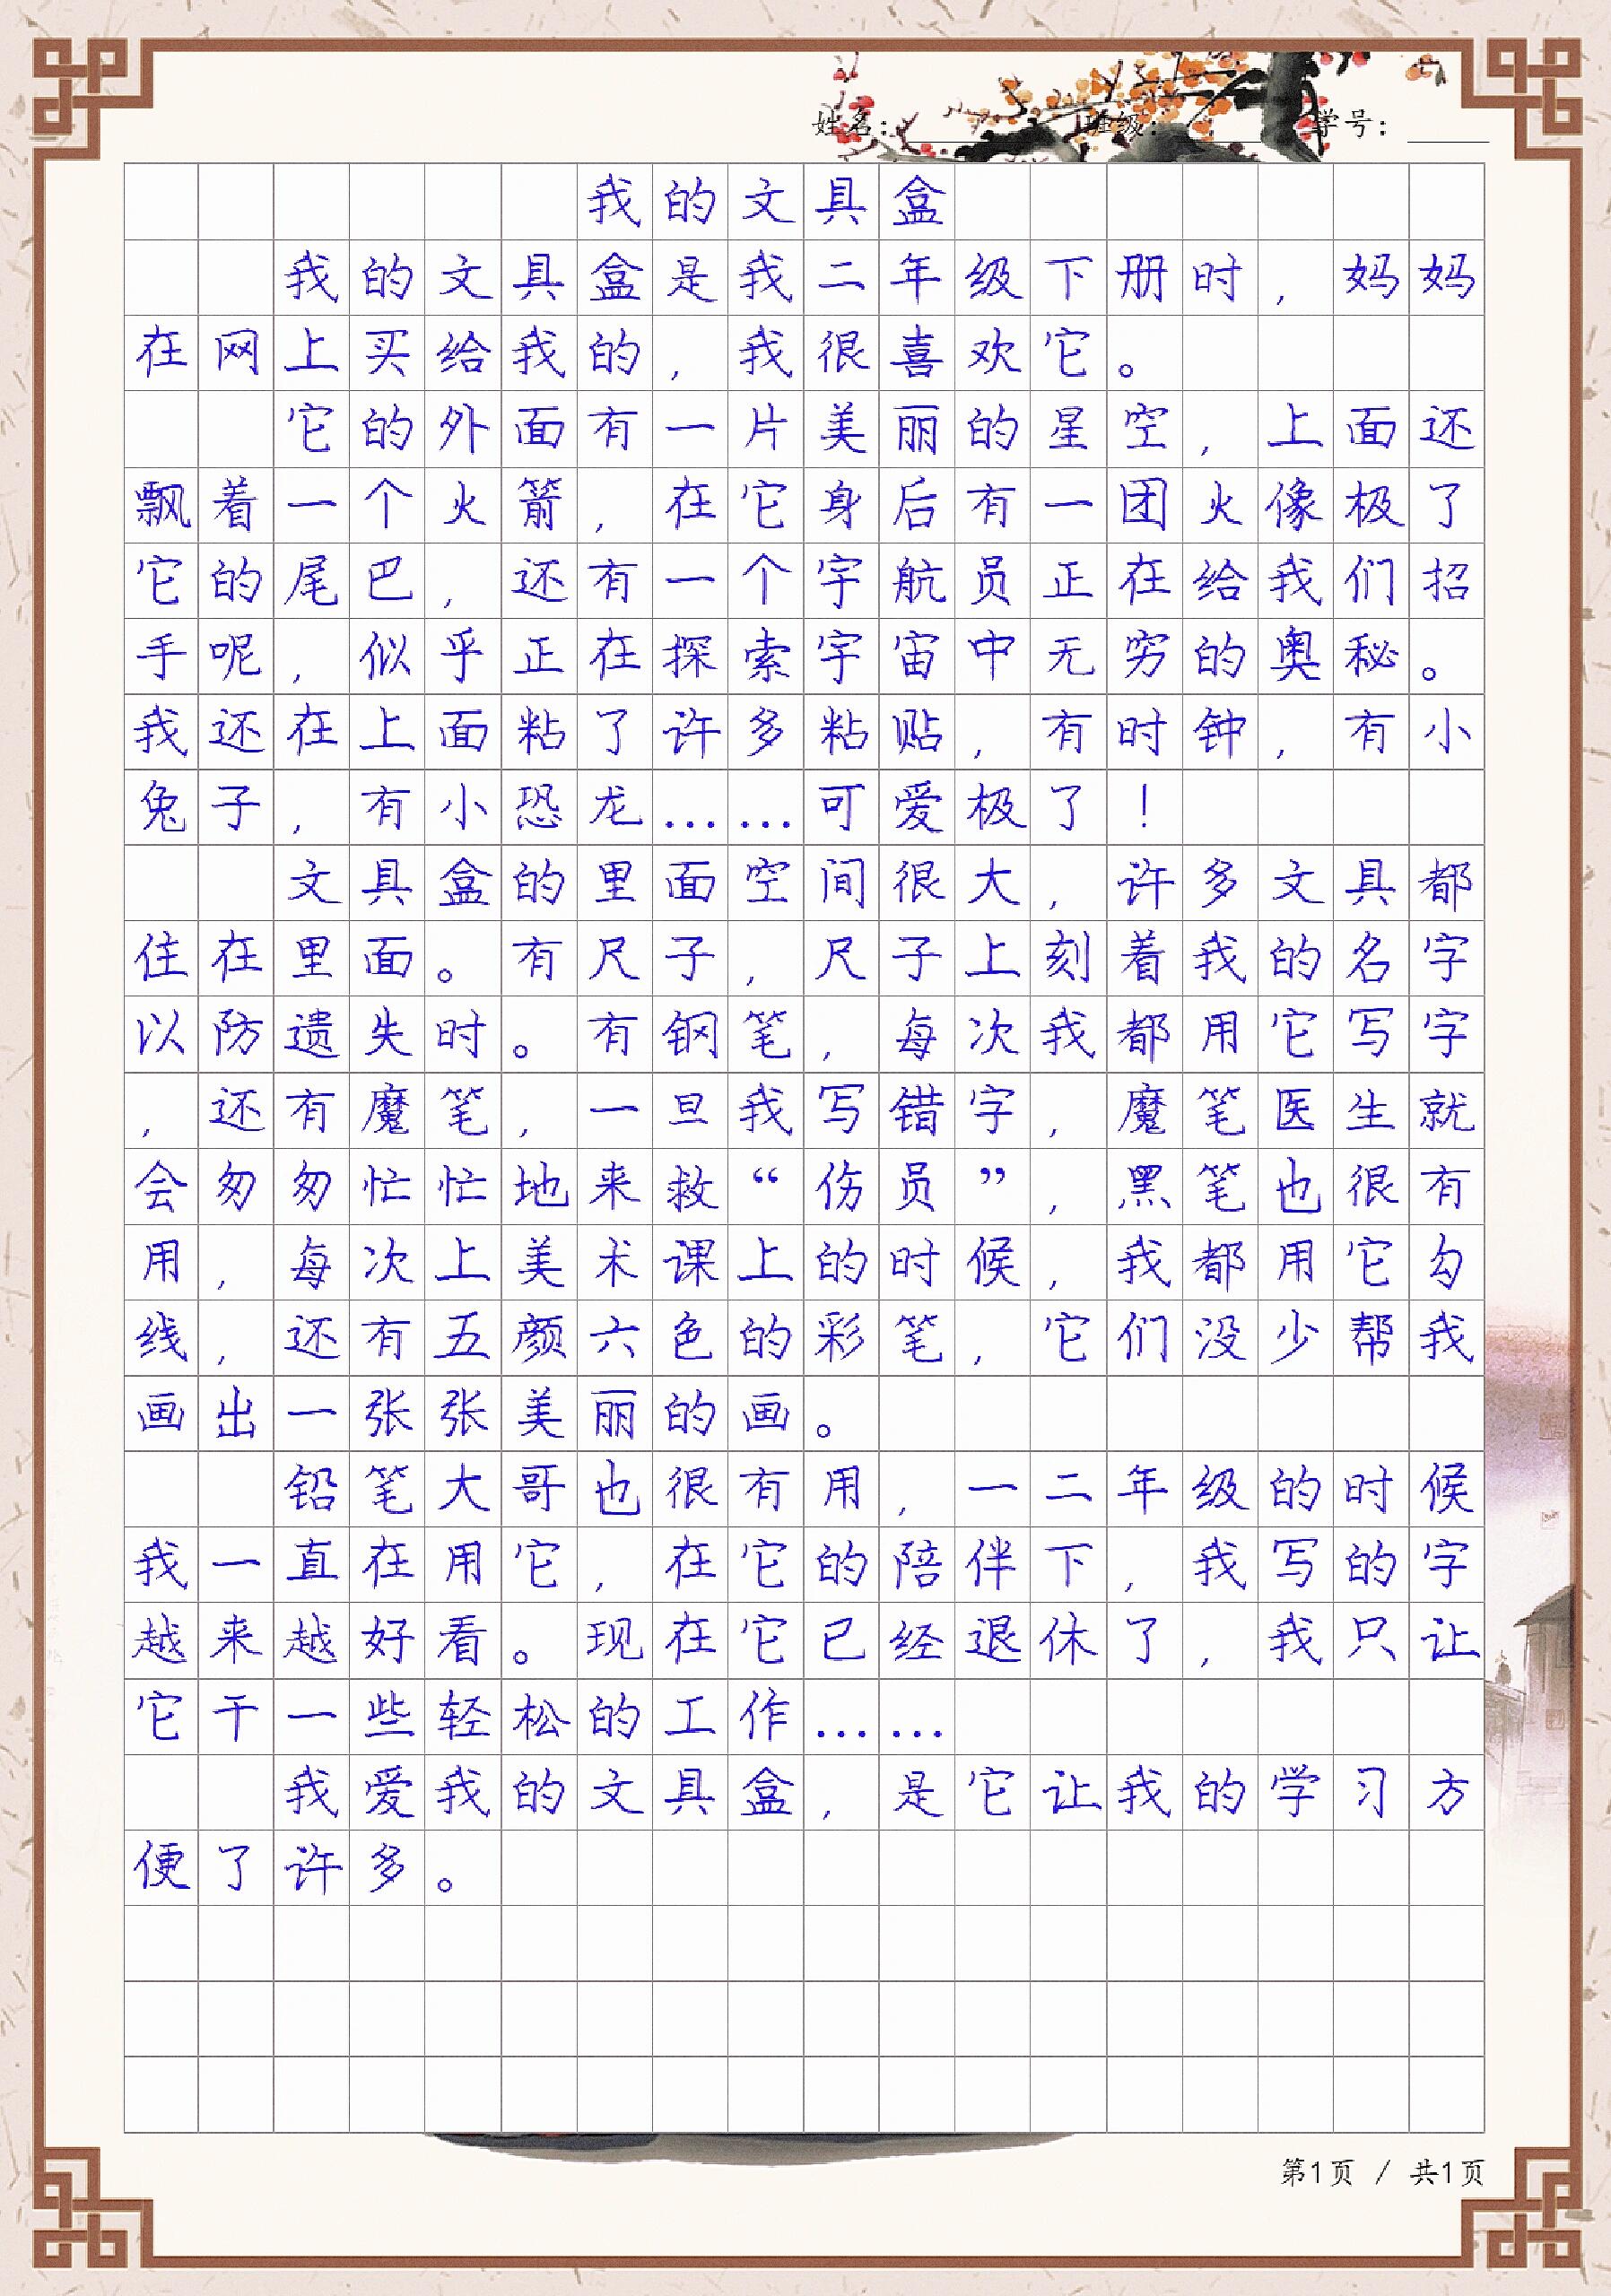 姓名： 班级： 学号：
我的文具盒
我的文具盒是我二年级下册时，妈妈
在网上买给我的，我很喜欢它。
它的外面有一片美丽的星空，上面还
飘着一个火箭，在它身后有一团火像极了
它的尾巴，还有一个宇航员正在给我们招
手呢，似乎正在探索宇宙中无穷的奥秘。
我还在上面粘了许多粘贴，有时钟，有小
兔子，有小恐龙……可爱极了！
文具盒的里面空间很大，许多文具都
住在里面。有尺子，尺子上刻着我的名字
以防遗失时。有钢笔，每次我都用它写字
，还有魔笔，一旦我写错字，魔笔医生就
会匆匆忙忙地来救“伤员”，黑笔也很有
用，每次上美术课上的时候，我都用它勾
线，还有五颜六色的彩笔，它们没少帮我
画出一张张美丽的画。
铅笔大哥也很有用，一二年级的时候
我一直在用它，在它的陪伴下，我写的字
越来越好看。现在它已经退休了，我只让
它干一些轻松的工作……
我爱我的文具盒，是它让我的学习方
便了许多。
第1页 / 共1页